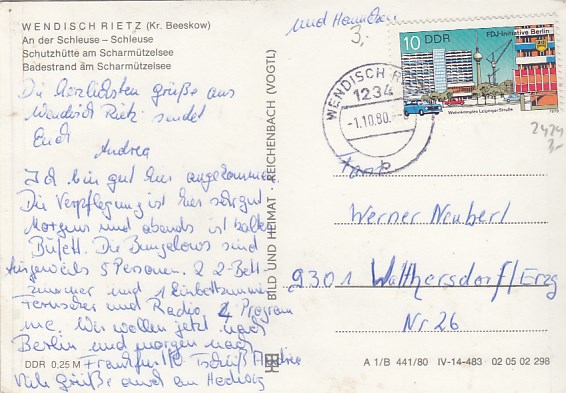 WENDISCH RIETZ (Kr. Beeskow)
An der Schleuse – Schleuse
Schutzhütte am Scharmützelsee
Badestrand am Scharmützelsee
Die herzlichsten Grüße aus
Wendisch Rietz sendet
Euch
Andrea
Ich bin gut hier angekommen
Die Verpflegung ist hier sehr gut
Morgens und abends ist kaltes
Büfett. Die Bungalows sind
für jeweils 5 Personen. 2 2-Bett-
zimmer und 1 Einbettzimmer
Fernseher und Radio 4 Program
me. Wir wollen jetzt nach
Berlin und morgen nach
Frankfurt/O Tschüß Andrea
Viele Grüße auch an Hedwig
DDR 0,25 M
BILD UND HEIMAT · REICHENBACH (VOGTL)
und
3,-
10 DDR
FDJ-Initiative Berlin
Wohnkomplex Leipziger Straße
1979
WENDISCH R
1234
-1.10.80.
2424
3,-
Werner Neubert
9301 Walthersdorf/Erzg
Nr 26
A 1/B 441/80 IV-14-483 02 05 02 298